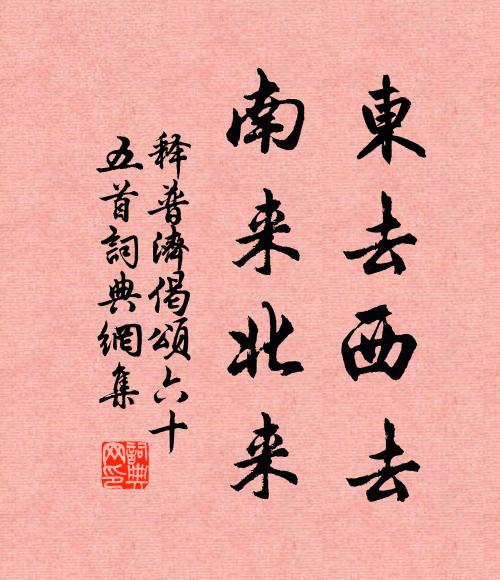 東去西去
南来北来
释普濟偈頌六十
五首詞典網集
詞典
网印